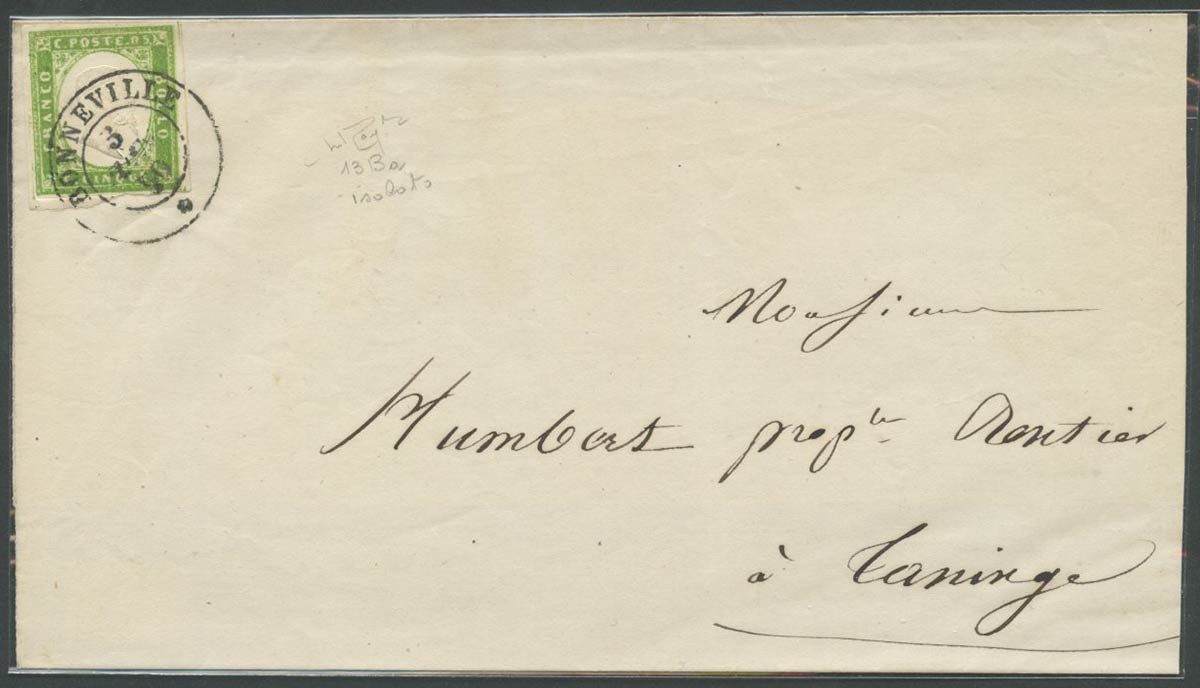 C. POSTE 05
FRANCO
BOLLO
BONNEVILLE
3
60
13Ba
isolato
Monsieur
Humbert prop.re Rentier
à Taninge